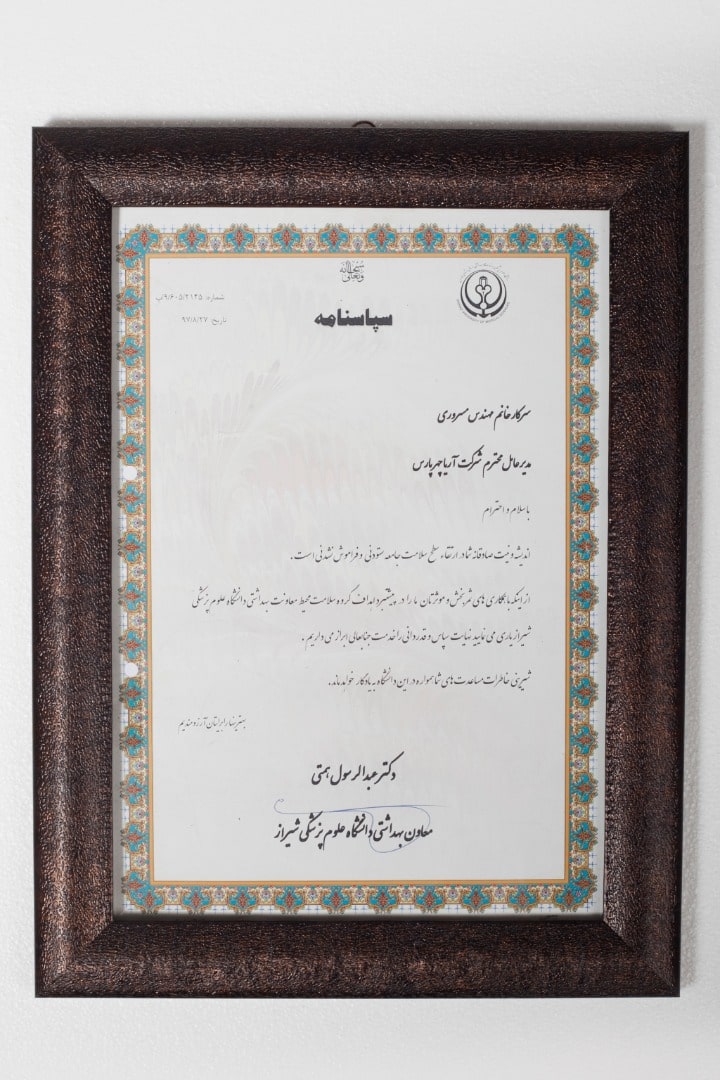 بسمه تعالی
شماره: ۹/۶۰۵/۲۱۴۵/پ
تاریخ: ۹۷/۸/۲۷
سپاسنامه
سرکار خانم مهندس مسروری
مدیر عامل محترم شرکت آریا چهر پارس
با سلام و احترام
اندیشه و نیت صادقانه شما در ارتقاء سطح سلامت جامعه ستودنی و فراموش نشدنی است .
از اینکه با همکاری های ثمربخش و موثرتان ما را در پیشبرد اهداف گروه سلامت محیط معاونت بهداشتی دانشگاه علوم پزشکی
شیراز یاری می نمایید نهایت سپاس و قدردانی را خدمت جنابعالی ابراز می داریم .
شیرینی خاطرات مساعدت های شما همواره در این دانشگاه به یادگار خواهد ماند.
بهترینها را برایتان آرزومندیم
دکتر عبدالرسول همتی
معاون بهداشتی دانشگاه علوم پزشکی شیراز